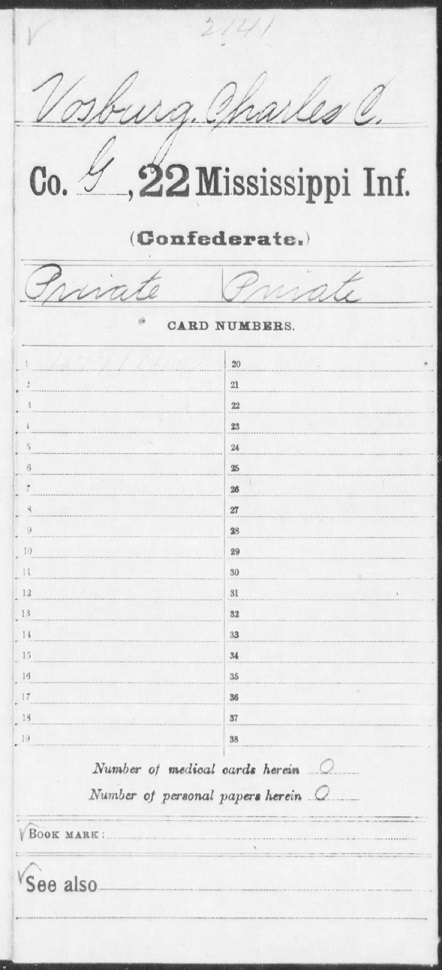 2141
Vosburg, Charles C.
Co. G, 22 Mississippi Inf.
(Confederate.)
Private Private
CARD NUMBERS.
1 20
2 21
3 22
4 23
5 24
6 25
7 26
8 27
9 28
10 29
11 30
12 31
13 32
14 33
15 34
16 35
17 36
18 37
19 38
Number of medical cards herein 0
Number of personal papers herein 0
BOOK MARK:
See also